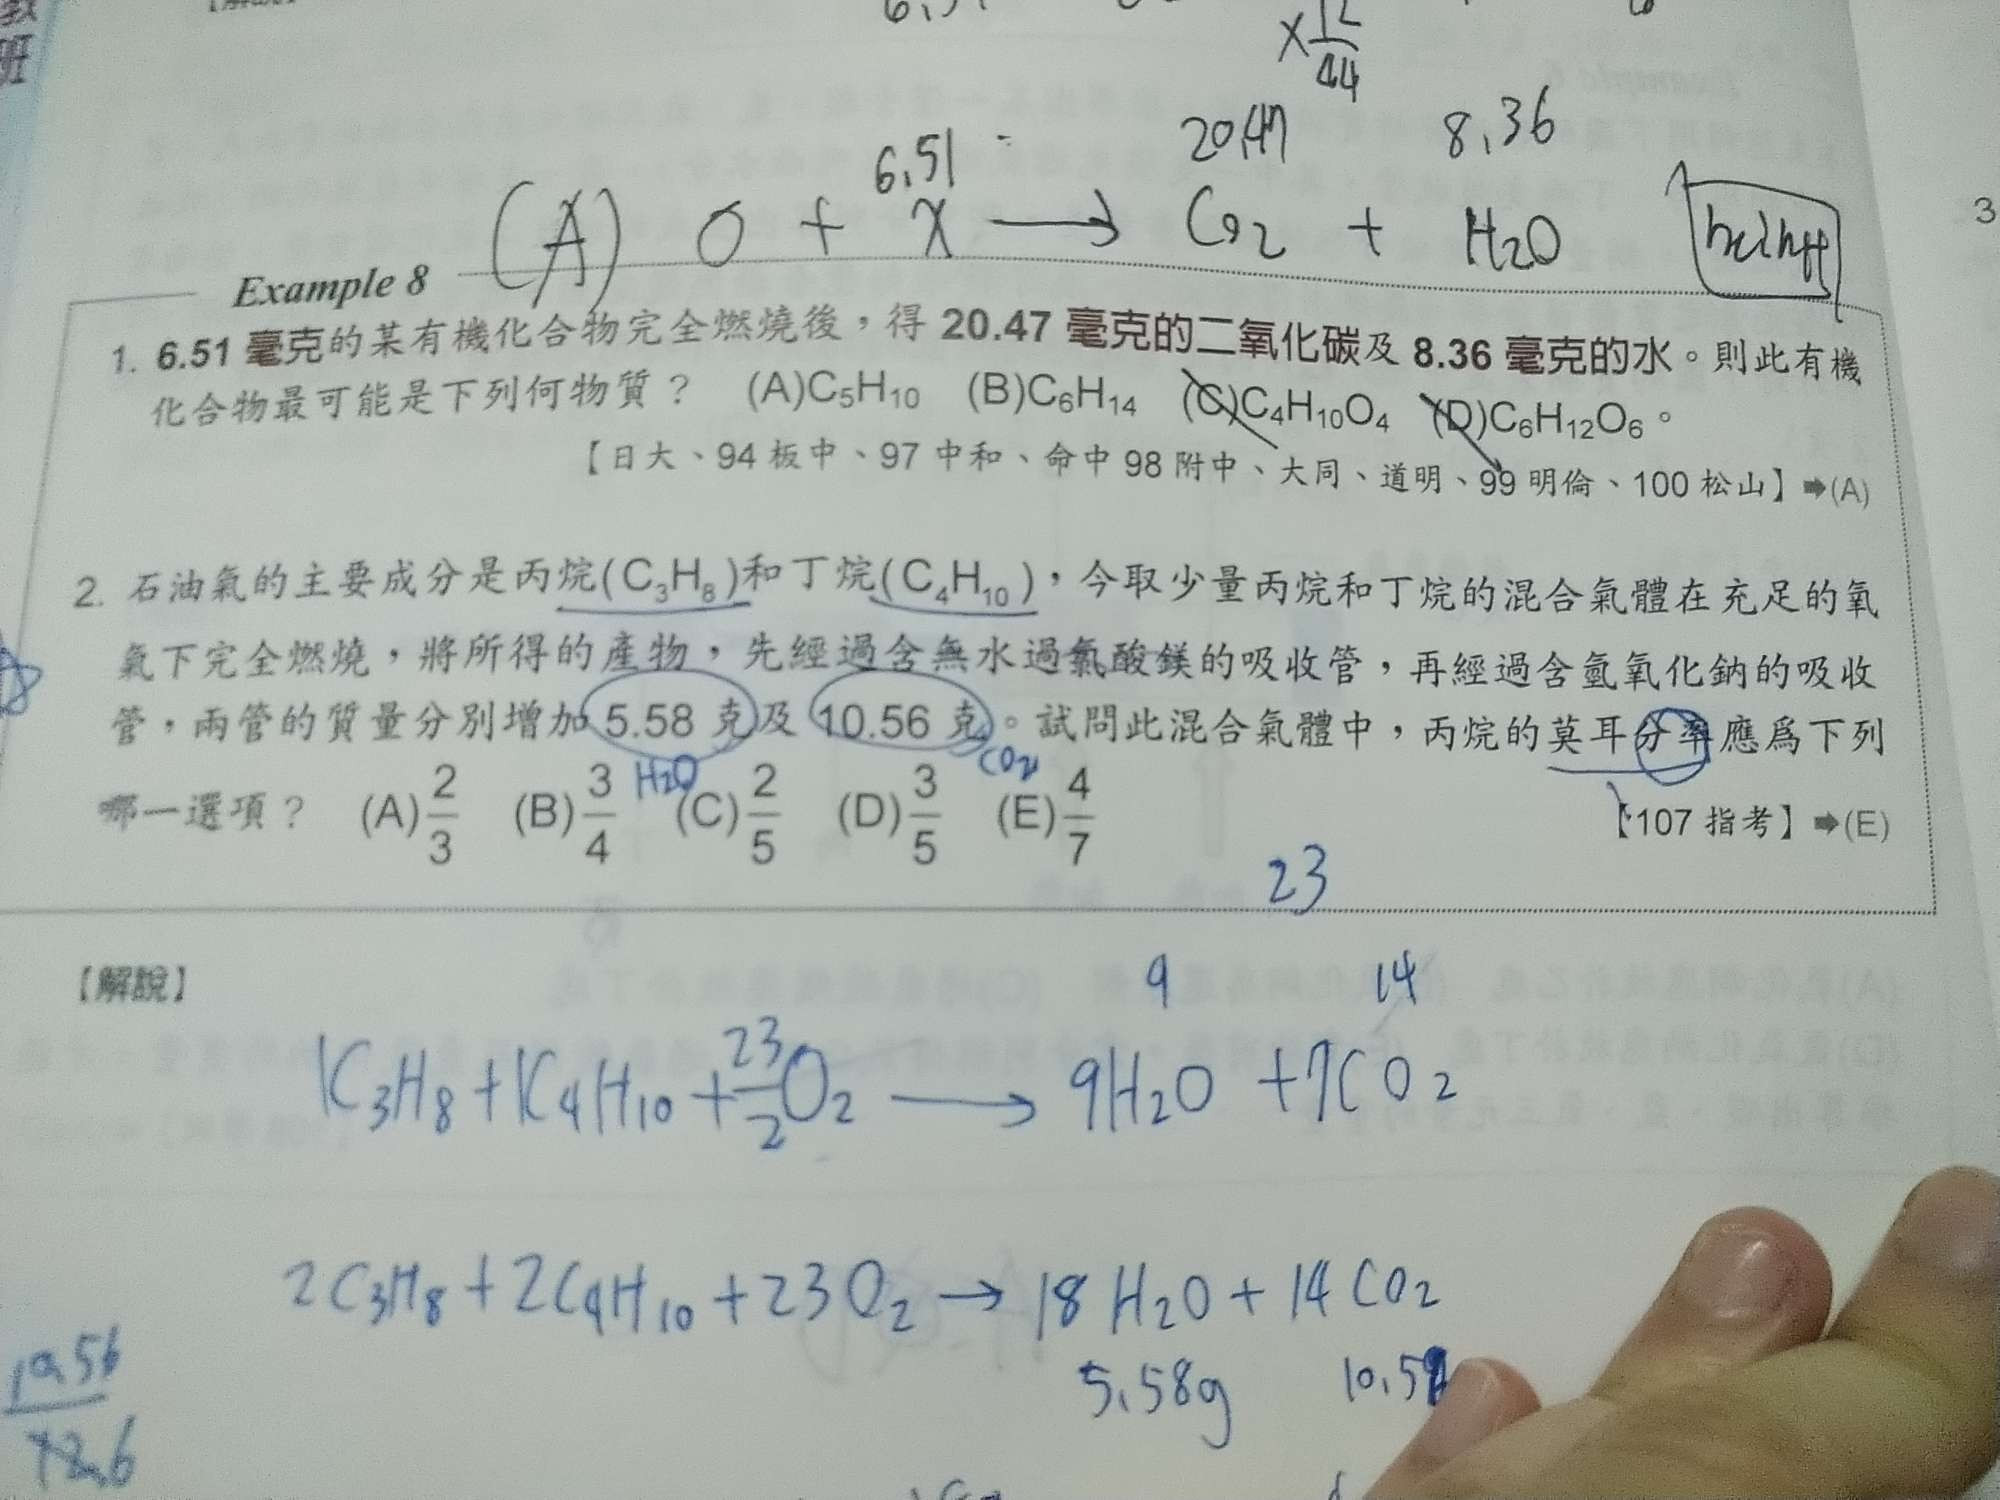 教
班
【解說】
6.51
× 12/44
20.47 8.36
6.51
(A) O + X → CO2 + H2O
3
Example 8
1. 6.51 毫克的某有機化合物完全燃燒後，得 20.47 毫克的二氧化碳及 8.36 毫克的水。則此有機
化合物最可能是下列何物質？ (A)C5H10 (B)C6H14 (C)C4H10O4 (D)C6H12O6。
【日大、94 板中、97 中和、命中 98 附中、大同、道明、99 明倫、100 松山】➡(A)
2. 石油氣的主要成分是丙烷(C3H8)和丁烷(C4H10)，今取少量丙烷和丁烷的混合氣體在充足的氧
氣下完全燃燒，將所得的產物，先經過含無水過氯酸鎂的吸收管，再經過含氫氧化鈉的吸收
管，兩管的質量分別增加 5.58 克及 10.56 克。試問此混合氣體中，丙烷的莫耳分率應為下列
H2O CO2
哪一選項？ (A) 2/3 (B) 3/4 (C) 2/5 (D) 3/5 (E) 4/7 【107 指考】➡(E)
23
【解說】
9 14
1C3H8 + 1C4H10 + 23/2 O2 → 9H2O + 7CO2
2C3H8 + 2C4H10 + 23O2 → 18H2O + 14CO2
5.58g 10.5
10.56